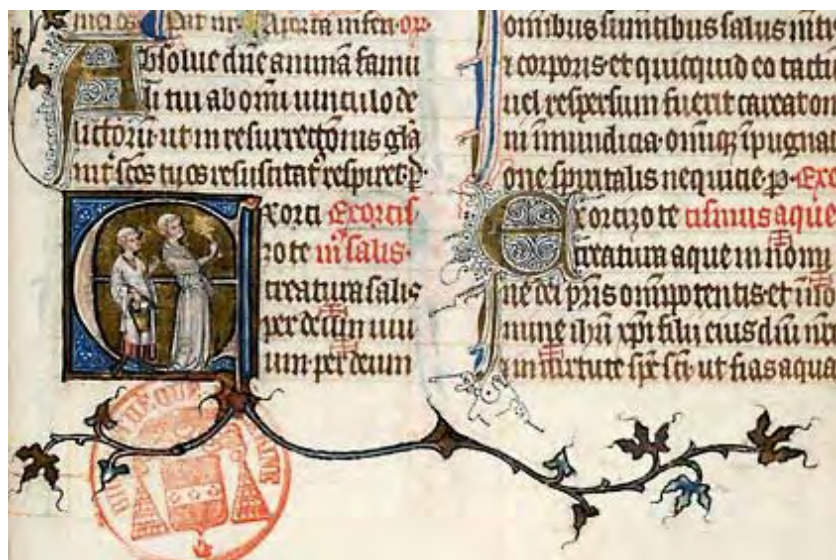 Absolue dñe animã famu
li tui ab omi uinculo de
lictorũ · ut in resurrectionis glã
int̃ sc̃os tuos resuscitat̃ respiret · p̃ ·
Exorci Exorcis
zo te m̃ salis ·
creatura salis
per deum uiu
um · per deum
omnibus sumentibus salus mẽtis
⁊ corporis et quicquid eo tactũ
uel respersum fuerit careat om
ni ĩmundicia · omniqꝫ ĩpugnati
one spiritalis nequicie · p̃ · Exor
Exorcizo te cismus aque
creatura aque in nomi
ne dei pr̃is omĩpotentis · et in no
mine ihũ xp̃i filii eius dñi nr̃i
⁊ in uirtute sp̃c sc̃i · ut fias aqua